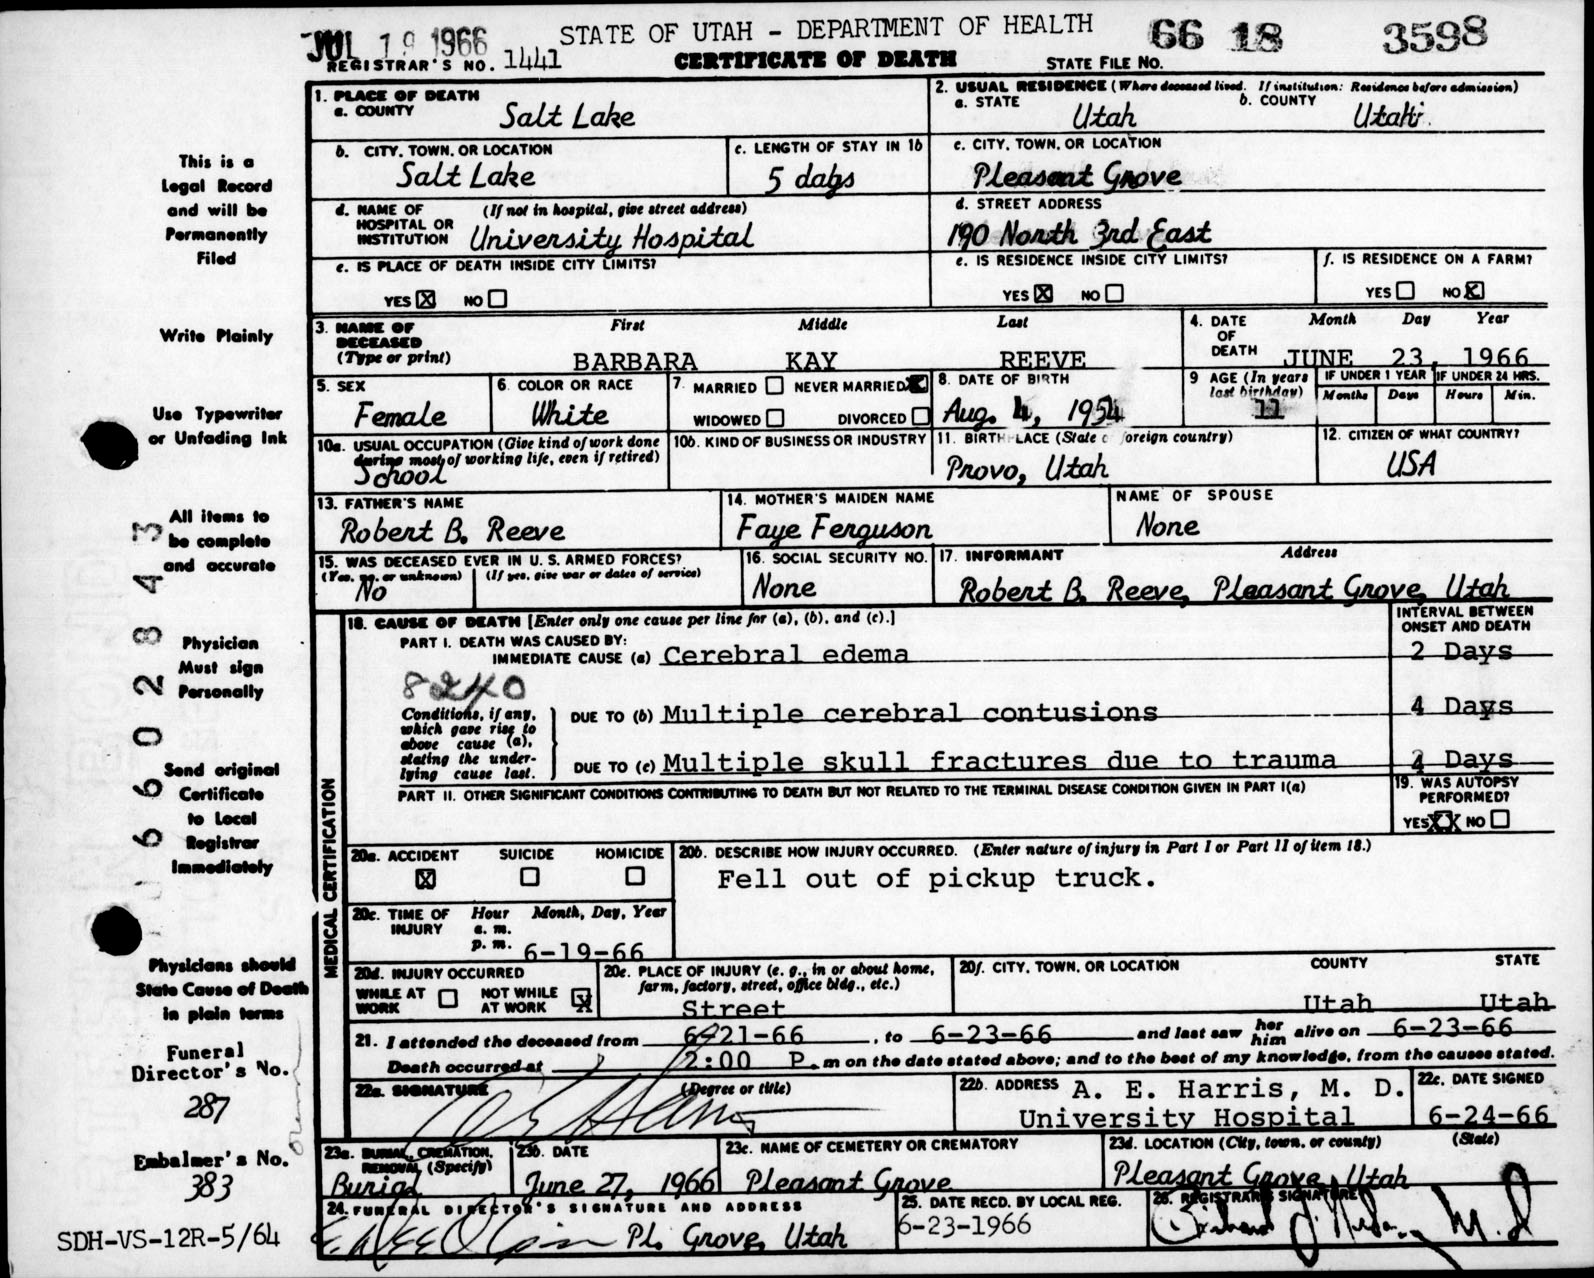 JUL 19 1966
STATE OF UTAH - DEPARTMENT OF HEALTH
66 18 3598
REGISTRAR'S NO. 1441
CERTIFICATE OF DEATH
STATE FILE NO.
1. PLACE OF DEATH
a. COUNTY
Salt Lake
2. USUAL RESIDENCE (Where deceased lived. If institution: Residence before admission)
a. STATE
Utah
b. COUNTY
Utah
b. CITY, TOWN, OR LOCATION
Salt Lake
c. LENGTH OF STAY IN 1b
5 days
c. CITY, TOWN, OR LOCATION
Pleasant Grove
d. NAME OF HOSPITAL OR INSTITUTION
(If not in hospital, give street address)
University Hospital
d. STREET ADDRESS
190 North 3rd East
e. IS PLACE OF DEATH INSIDE CITY LIMITS?
YES X NO
e. IS RESIDENCE INSIDE CITY LIMITS?
YES X NO
f. IS RESIDENCE ON A FARM?
YES NO X
3. NAME OF DECEASED
(Type or print)
First Middle Last
BARBARA KAY REEVE
4. DATE OF DEATH
Month Day Year
JUNE 23, 1966
5. SEX
Female
6. COLOR OR RACE
White
7. MARRIED NEVER MARRIED X
WIDOWED DIVORCED
8. DATE OF BIRTH
Aug. 4, 1954
9 AGE (In years last birthday)
11
IF UNDER 1 YEAR
Months Days
IF UNDER 24 HRS.
Hours Min.
10a. USUAL OCCUPATION (Give kind of work done during most of working life, even if retired)
School
10b. KIND OF BUSINESS OR INDUSTRY
11. BIRTHPLACE (State or foreign country)
Provo, Utah
12. CITIZEN OF WHAT COUNTRY?
USA
13. FATHER'S NAME
Robert B. Reeve
14. MOTHER'S MAIDEN NAME
Faye Ferguson
NAME OF SPOUSE
None
15. WAS DECEASED EVER IN U. S. ARMED FORCES?
(Yes, no, or unknown) (If yes, give war or dates of service)
No
16. SOCIAL SECURITY NO.
None
17. INFORMANT Address
Robert B. Reeve, Pleasant Grove, Utah
MEDICAL CERTIFICATION
18. CAUSE OF DEATH [Enter only one cause per line for (a), (b), and (c).]
INTERVAL BETWEEN ONSET AND DEATH
PART I. DEATH WAS CAUSED BY:
IMMEDIATE CAUSE (a) Cerebral edema
2 Days
8240
Conditions, if any, which gave rise to above cause (a), stating the underlying cause last.
DUE TO (b) Multiple cerebral contusions
4 Days
DUE TO (c) Multiple skull fractures due to trauma
4 Days
PART II. OTHER SIGNIFICANT CONDITIONS CONTRIBUTING TO DEATH BUT NOT RELATED TO THE TERMINAL DISEASE CONDITION GIVEN IN PART I(a)
19. WAS AUTOPSY PERFORMED?
YES XX NO
20a. ACCIDENT SUICIDE HOMICIDE
X
20b. DESCRIBE HOW INJURY OCCURRED. (Enter nature of injury in Part I or Part II of item 18.)
Fell out of pickup truck.
20c. TIME OF INJURY
Hour Month, Day, Year
a. m.
p. m. 6-19-66
20d. INJURY OCCURRED
WHILE AT WORK NOT WHILE AT WORK X
20e. PLACE OF INJURY (e. g., in or about home, farm, factory, street, office bldg., etc.)
Street
20f. CITY, TOWN, OR LOCATION COUNTY STATE
Utah Utah
21. I attended the deceased from 6-21-66, to 6-23-66 and last saw her him alive on 6-23-66
Death occurred at 2:00 P. m on the date stated above; and to the best of my knowledge, from the causes stated.
22a. SIGNATURE (Degree or title)
22b. ADDRESS A. E. Harris, M. D.
University Hospital
22c. DATE SIGNED
6-24-66
23a. BURIAL, CREMATION, REMOVAL (Specify)
Burial
23b. DATE
June 27, 1966
23c. NAME OF CEMETERY OR CREMATORY
Pleasant Grove
23d. LOCATION (City, town, or county) (State)
Pleasant Grove, Utah
24. FUNERAL DIRECTOR'S SIGNATURE AND ADDRESS
Pl. Grove, Utah
25. DATE RECD. BY LOCAL REG.
6-23-1966
26. REGISTRAR'S SIGNATURE
M.D
This is a
Legal Record
and will be
Permanently
Filed
Write Plainly
Use Typewriter
or Unfading Ink
All items to
be complete
and accurate
Physician
Must sign
Personally
Send original
Certificate
to Local
Registrar
Immediately
Physicians should
State Cause of Death
in plain terms
Funeral
Director's No.
287
Embalmer's No.
383
SDH-VS-12R-5/64
6602843